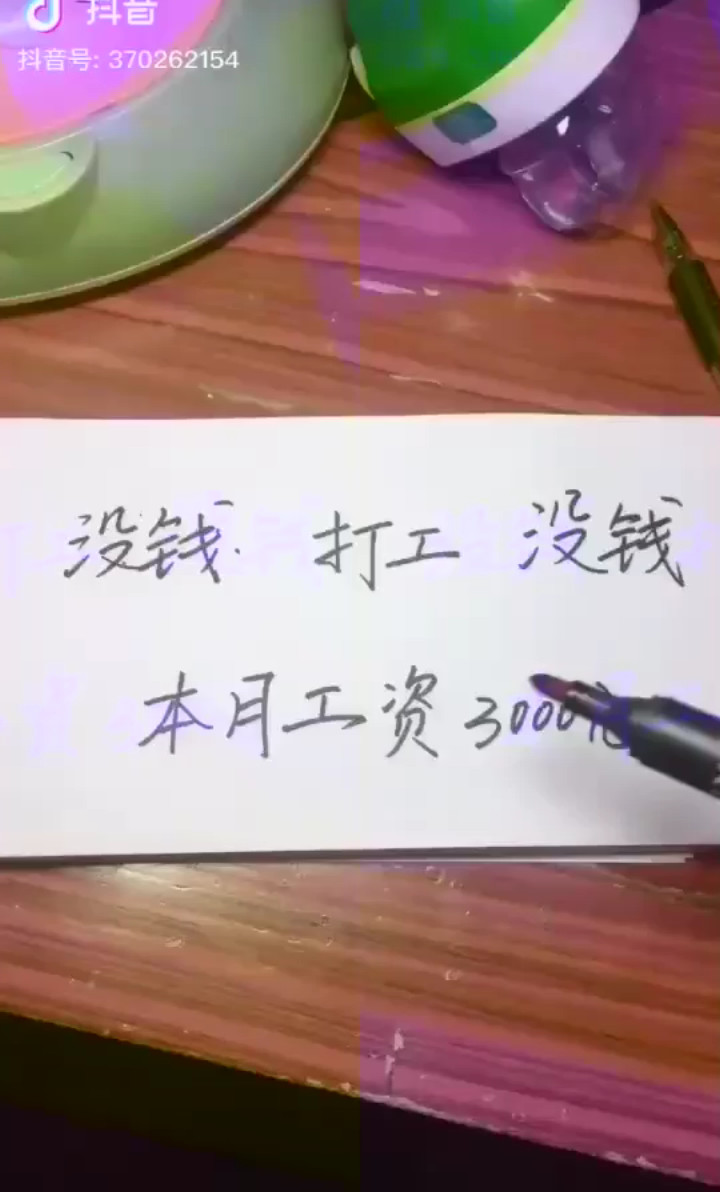 抖音
抖音号: 370262154
没钱 打工 没钱
本月工资 3000